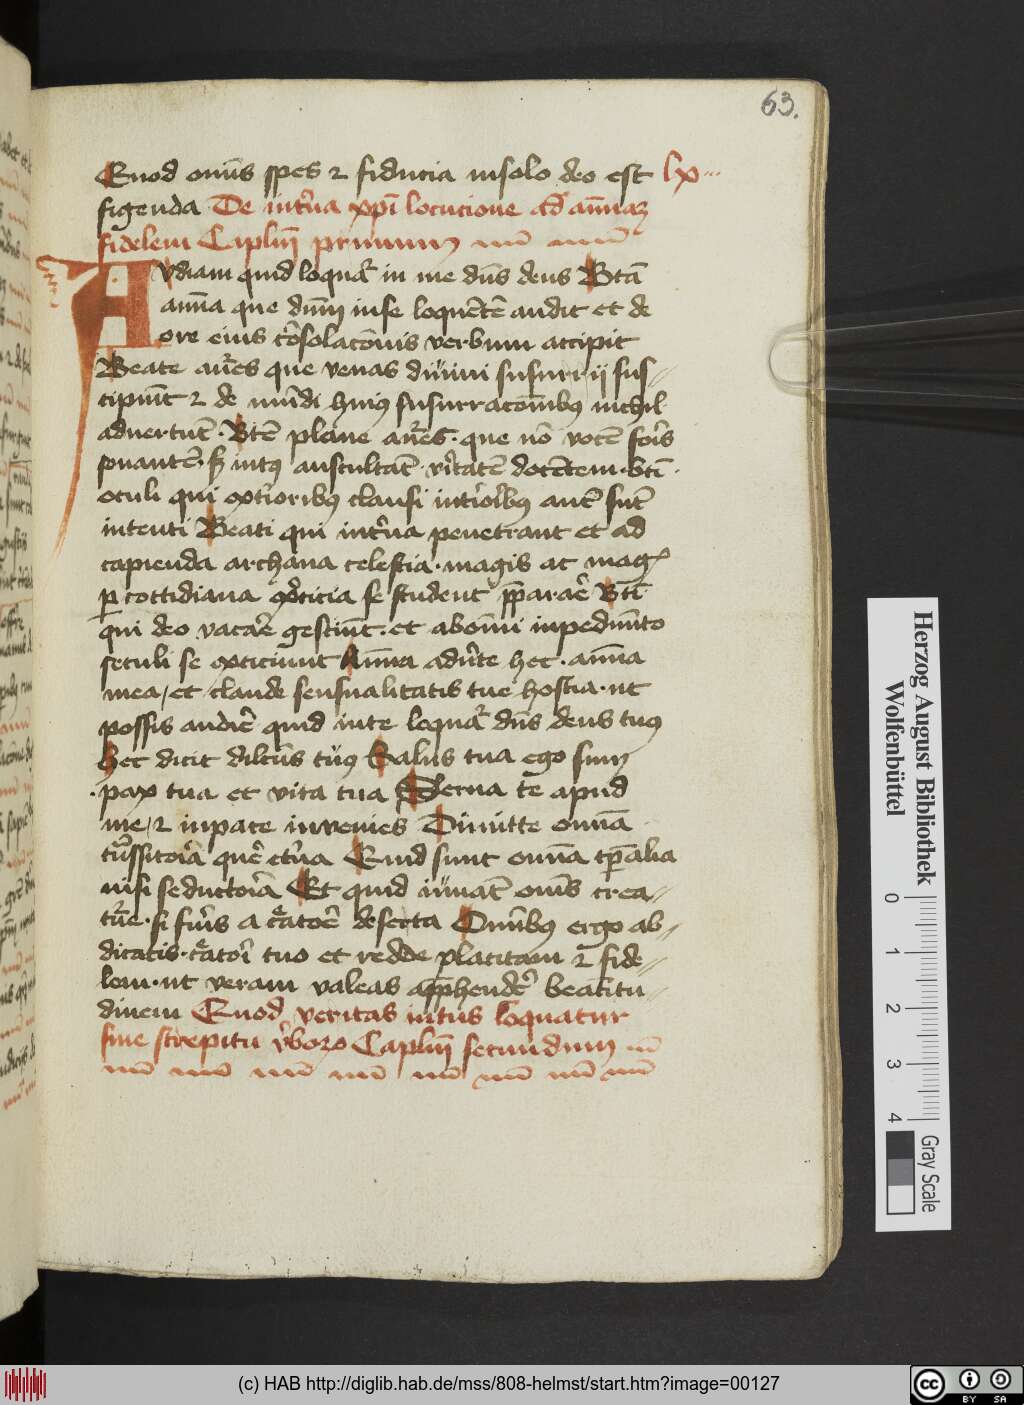 63.
Quod omīs spes ⁊ fiducia in solo deo est lx
figenda De int̄na xp̄i locucione ad aīmaꝫ
fidelem Caplm̄ primum
Audiam quid loquar̄ in me dn̄s deus Bt̄a
aīma que dn̄m in se loquētē audit et de
ore eius cōsolacōnis verbum accipit
Beate aur̄es que venas diuini susurrij sus//
cipiūt ⁊ de mūdi huiꝰ susurracōnibꝰ nichil
aduertūt · Btē plane aur̄es · que nō vocē foris
sonantē · sꝫ intꝰ auscultāt · v̄itatē docētem · btī ·
oculi qui exterioribꝰ clausi int̄ioribꝰ autē sūt
intenti Beati qui int̄na penetrant et ad
capienda archana celestia · magis ac maḡ
ꝑ cottidiana ex̄cicia se student p̄pararē Btī
qui deo vacarē gestiūt · et ab omni inpedimēto
seculi se excuciunt Aīma adūte hec · aīma
mea / et claude sensualitatis tue hostia · ut
possis audirē quid in te loquar̄ dn̄s deus tuꝰ
Hec dicit dilcūs tuꝰ Salus tua ego sum
· pax tua et vita tua Serua te apud
me / ⁊ in pace invenies Dimitte omīa
tn̄ssitoria quer̄e et̄na Quid sunt omīa tp̄alia
nisi seductoria Et quid iuuāt omīs crea-//
tur̄e · si fueris a c̄atorē deserta Omībꝰ ergo ab-//
dicatis · c̄atori tuo et redde placitam ⁊ fide//
lem · ut veram valeas app̄hender̄e beatitu//
dinem Quod veritas intus loquatur
sine strepitu v̄boꝝ Caplm̄ secundum
Herzog August Bibliothek
Wolfenbüttel
0
1
2
3
4
Gray Scale
(c) HAB http://diglib.hab.de/mss/808-helmst/start.htm?image=00127
cc
BY SA